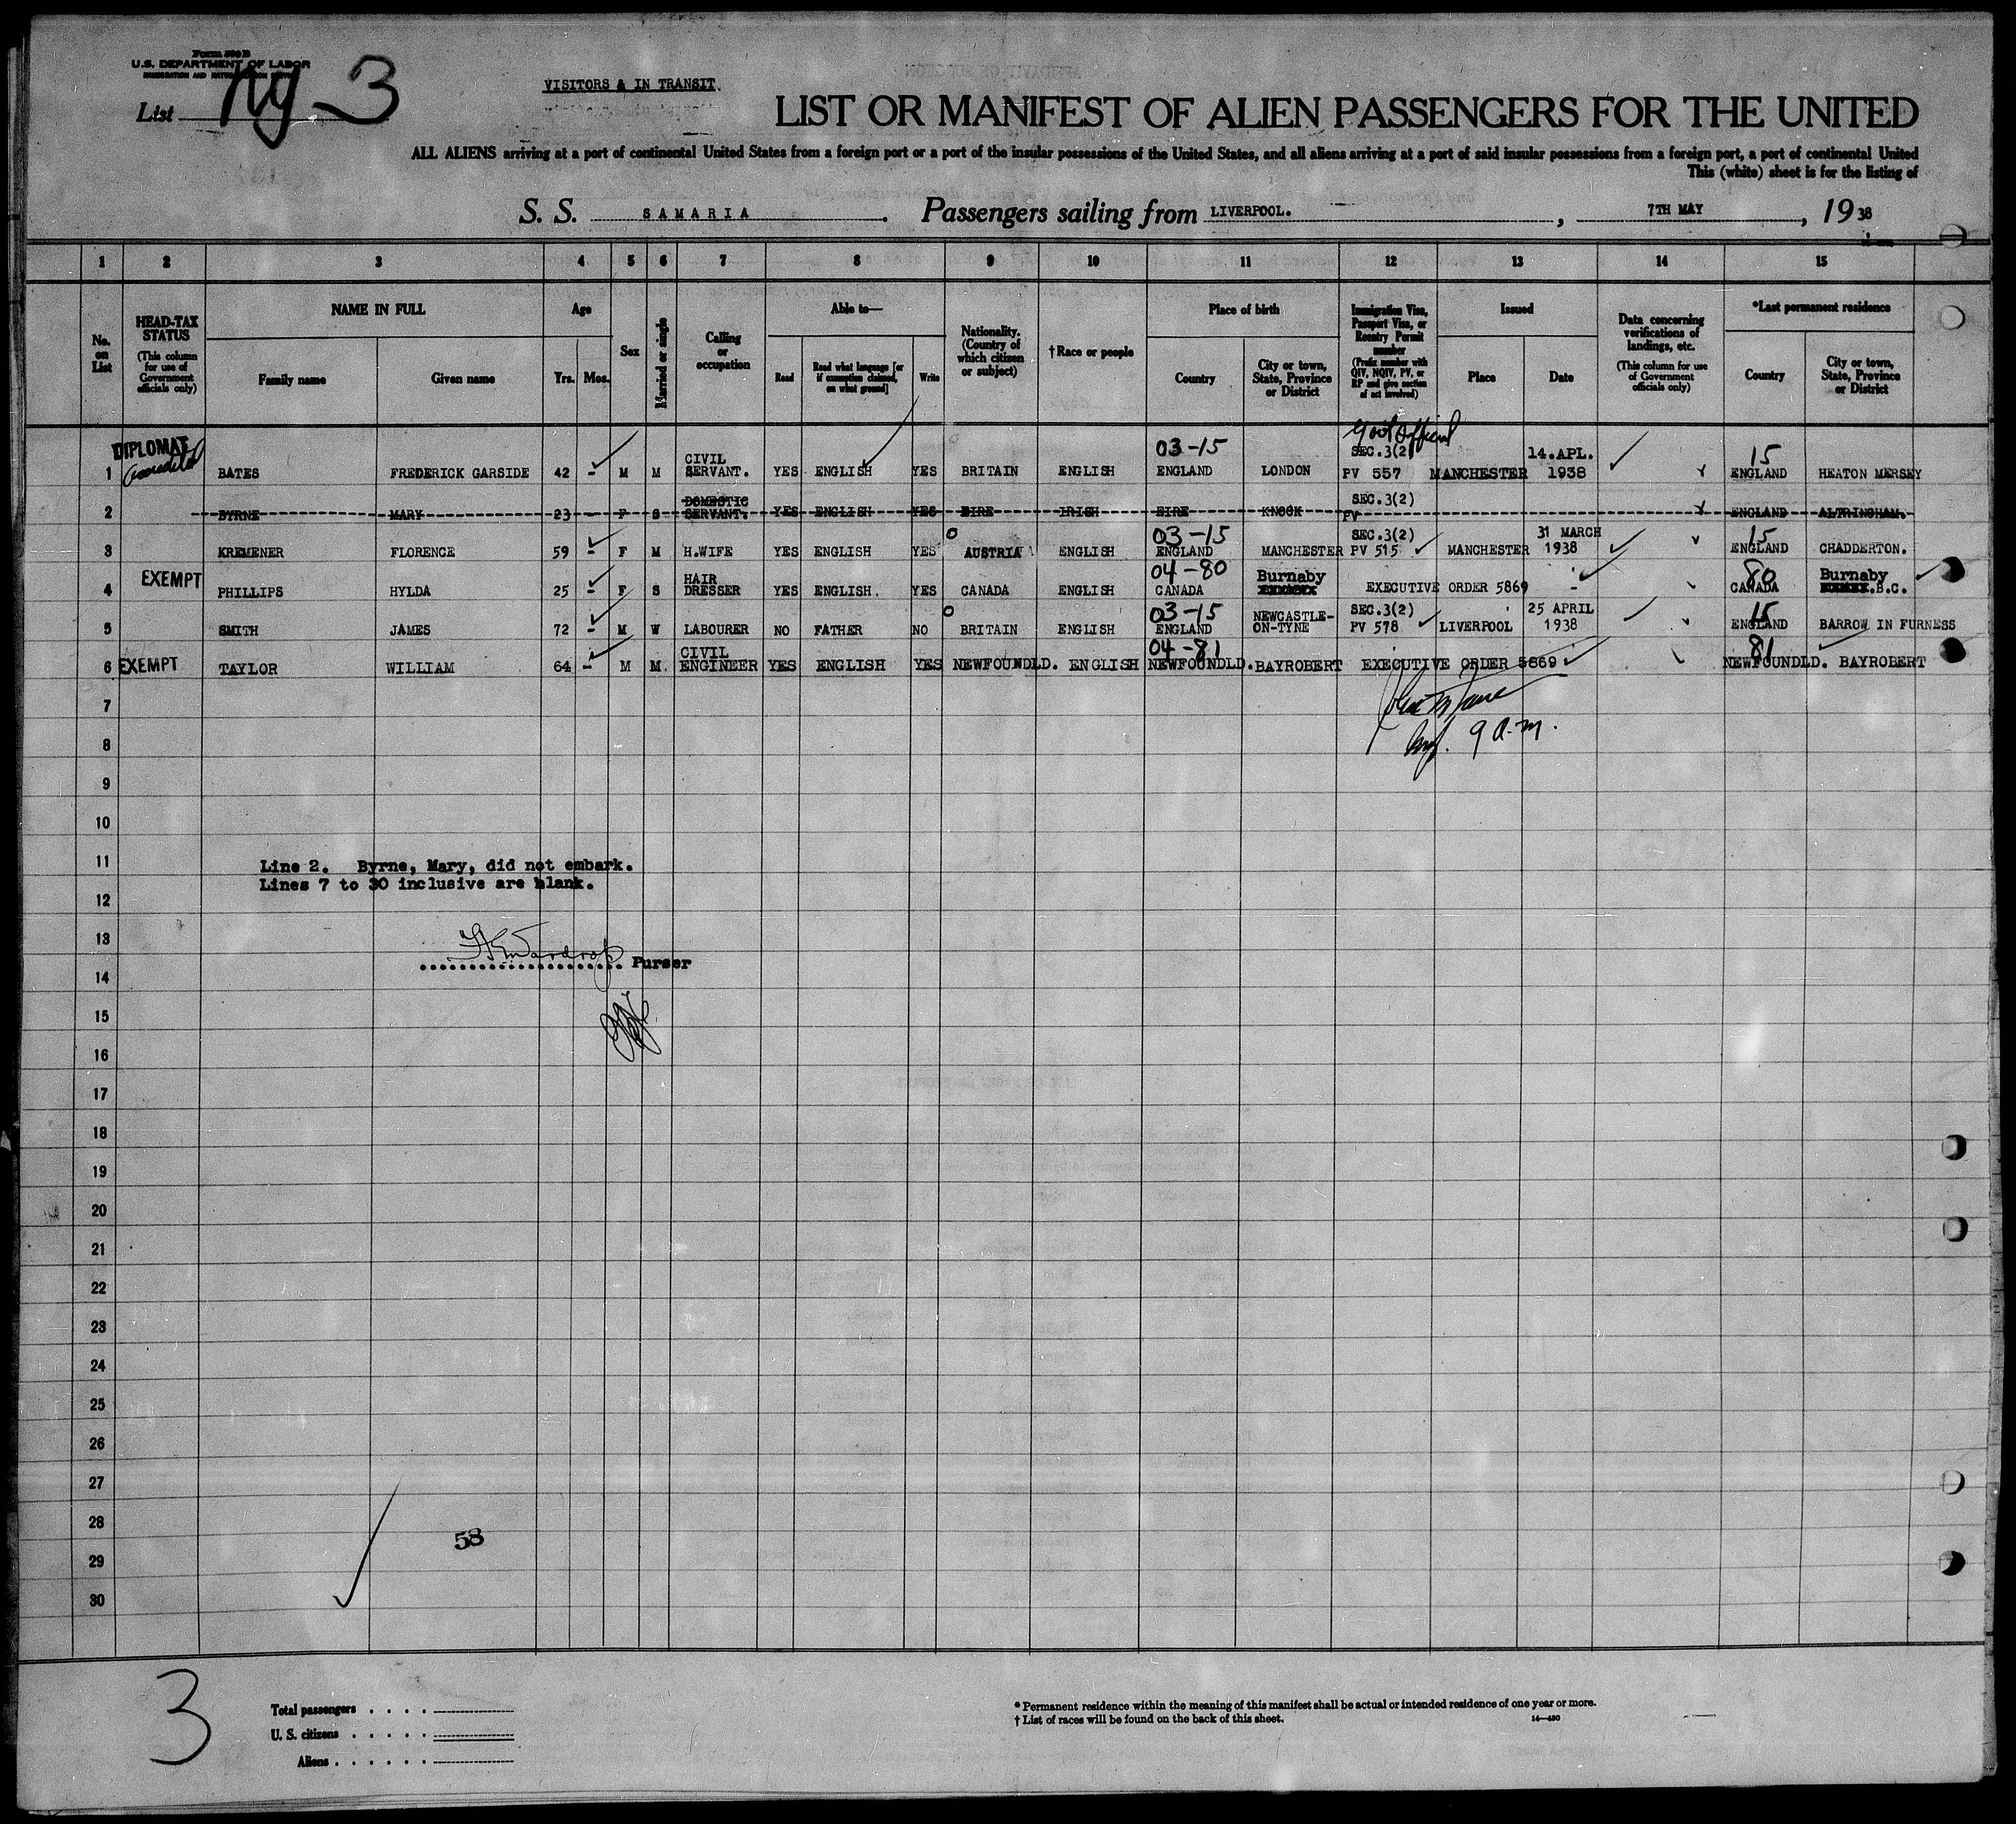 Form 500 B
U.S. DEPARTMENT OF LABOR
IMMIGRATION AND NATURALIZATION SERVICE
List Ny 3
VISITORS & IN TRANSIT.
LIST OR MANIFEST OF ALIEN PASSENGERS FOR THE UNITED
ALL ALIENS arriving at a port of continental United States from a foreign port or a port of the insular possessions of the United States, and all aliens arriving at a port of said insular possessions from a foreign port, a port of continental United
This (white) sheet is for the listing of
S. S. SAMARIA. Passengers sailing from LIVERPOOL. , 7TH MAY , 19 38
1 2 3 4 5 6 7 8 9 10 11 12 13 14 15
No. on List
HEAD-TAX STATUS (This column for use of Government officials only)
NAME IN FULL Family name Given name
Age Yrs. Mos.
Sex
Married or single
Calling or occupation
Able to— Read Read what language [or if exemption claimed, on what ground] Write
Nationality. (Country of which citizen or subject)
†Race or people
Place of birth Country City or town, State, Province or District
Immigration Visa, Passport Visa, or Reentry Permit number (Prefix number with QIV, NQIV, PV, or RP and give section of act involved)
Issued Place Date
Data concerning verifications of landings, etc. (This column for use of Government officials only)
*Last permanent residence Country City or town, State, Province or District
Govt Official
DIPLOMAT CIVIL 03-15 SEC.3(2) 14.APL. 15
1 BATES FREDERICK GARSIDE 42 - M M SERVANT. YES ENGLISH YES BRITAIN ENGLISH ENGLAND LONDON PV 557 MANCHESTER 1938 ENGLAND HEATON MERSEY
DOMESTIC SEC.3(2)
2 BYRNE MARY 23 - F S SERVANT. YES ENGLISH YES EIRE IRISH EIRE KNOCK PV ENGLAND ALTRINGHAM.
03-15 SEC.3(2) 31 MARCH 15
3 KREMENER FLORENCE 59 - F M H.WIFE YES ENGLISH YES AUSTRIA ENGLISH ENGLAND MANCHESTER PV 515 MANCHESTER 1938 ENGLAND CHADDERTON.
EXEMPT HAIR 04-80 Burnaby 80 Burnaby
4 PHILLIPS HYLDA 25 - F S DRESSER YES ENGLISH. YES CANADA ENGLISH CANADA EXECUTIVE ORDER 5869 - CANADA .B.C.
03-15 NEWCASTLE- SEC.3(2) 25 APRIL 15
5 SMITH JAMES 72 - M W LABOURER NO FATHER NO BRITAIN ENGLISH ENGLAND ON-TYNE PV 578 LIVERPOOL 1938 ENGLAND BARROW IN FURNESS
CIVIL 04-81 81
6 EXEMPT TAYLOR WILLIAM 64 - M M. ENGINEER YES ENGLISH YES NEWFOUNDLD. ENGLISH NEWFOUNDLD. BAYROBERT EXECUTIVE ORDER 5869 NEWFOUNDLD. BAYROBERT
7
8 9 a.m.
9
10
11
Line 2. Byrne, Mary, did not embark.
Lines 7 to 30 inclusive are blank.
12
13
Purser
14
15
16
17
18
19
20
21
22
23
24
25
26
27
28
58
29
30
3
Total passengers
U. S. citizens
Aliens
* Permanent residence within the meaning of this manifest shall be actual or intended residence of one year or more.
† List of races will be found on the back of this sheet. 14—430